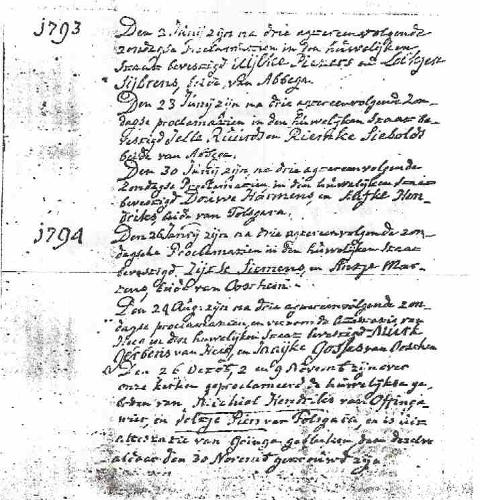 1793
Den 2 Junij zijn na drie agtereenvolgende
zondagse Proclamatien in den huwelijken
staat bevestigd Pieters en
Sijbrens, beide van Abbega.
Den 23 Junij zijn na drie agtereenvolgende Zon-
dagse proclamatien in den huwelijken Staat be-
vestigd Jelle Ruurds en Riemke Siebolds
beide van Abbega.
Den 30 Junij zijn, na drie agtereenvolgende
Zondagse Proclamatien in den huwelijken Staat
bevestigd Douwe Harmens en Aafke Hen
driks beide van Folsgara.
1794
Den 26 Janij zijn na drie agtereenvolgende zon-
dagsche Proclamatien in den huwelijken Staat
bevestigd, Sijtse Siemens, en Antje Mar-
tens, beide van Oosthem.
Den 24 Aug. zijn na drie agtereenvolgende zon-
dagse proclamatien, en van
Heeg in den huwelijken Staat bevestigd
Gerbens van Heeg, en Gosses van Oosthem
Den 26 Octob, 2 en 9 Novemb zijn over
onze kerken geproclameerd de huwelijksge-
boden van Michiel Hendriks van Offinga-
wier, en Piers van Folsgara, en is uit
attestatie van Goinga gebleken, dat dezelve
aldaar den 30 Novemb getrouwd zijn